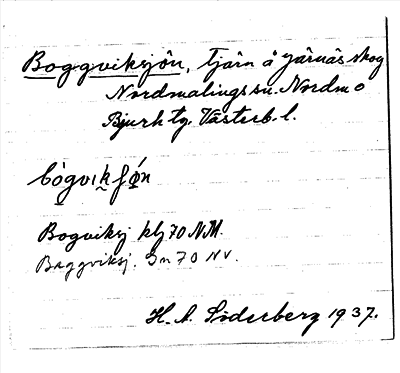 Boggviksjön, tjärn å Järnäs skog
Nordmalings sn. Nordm o
Bjurh tg. Västerb. l.
bògvɪkʃǿn
Bogviksj klj 70 NM.
Baggviksj. Gn 70 NV.
H. A. Söderberg 1937.